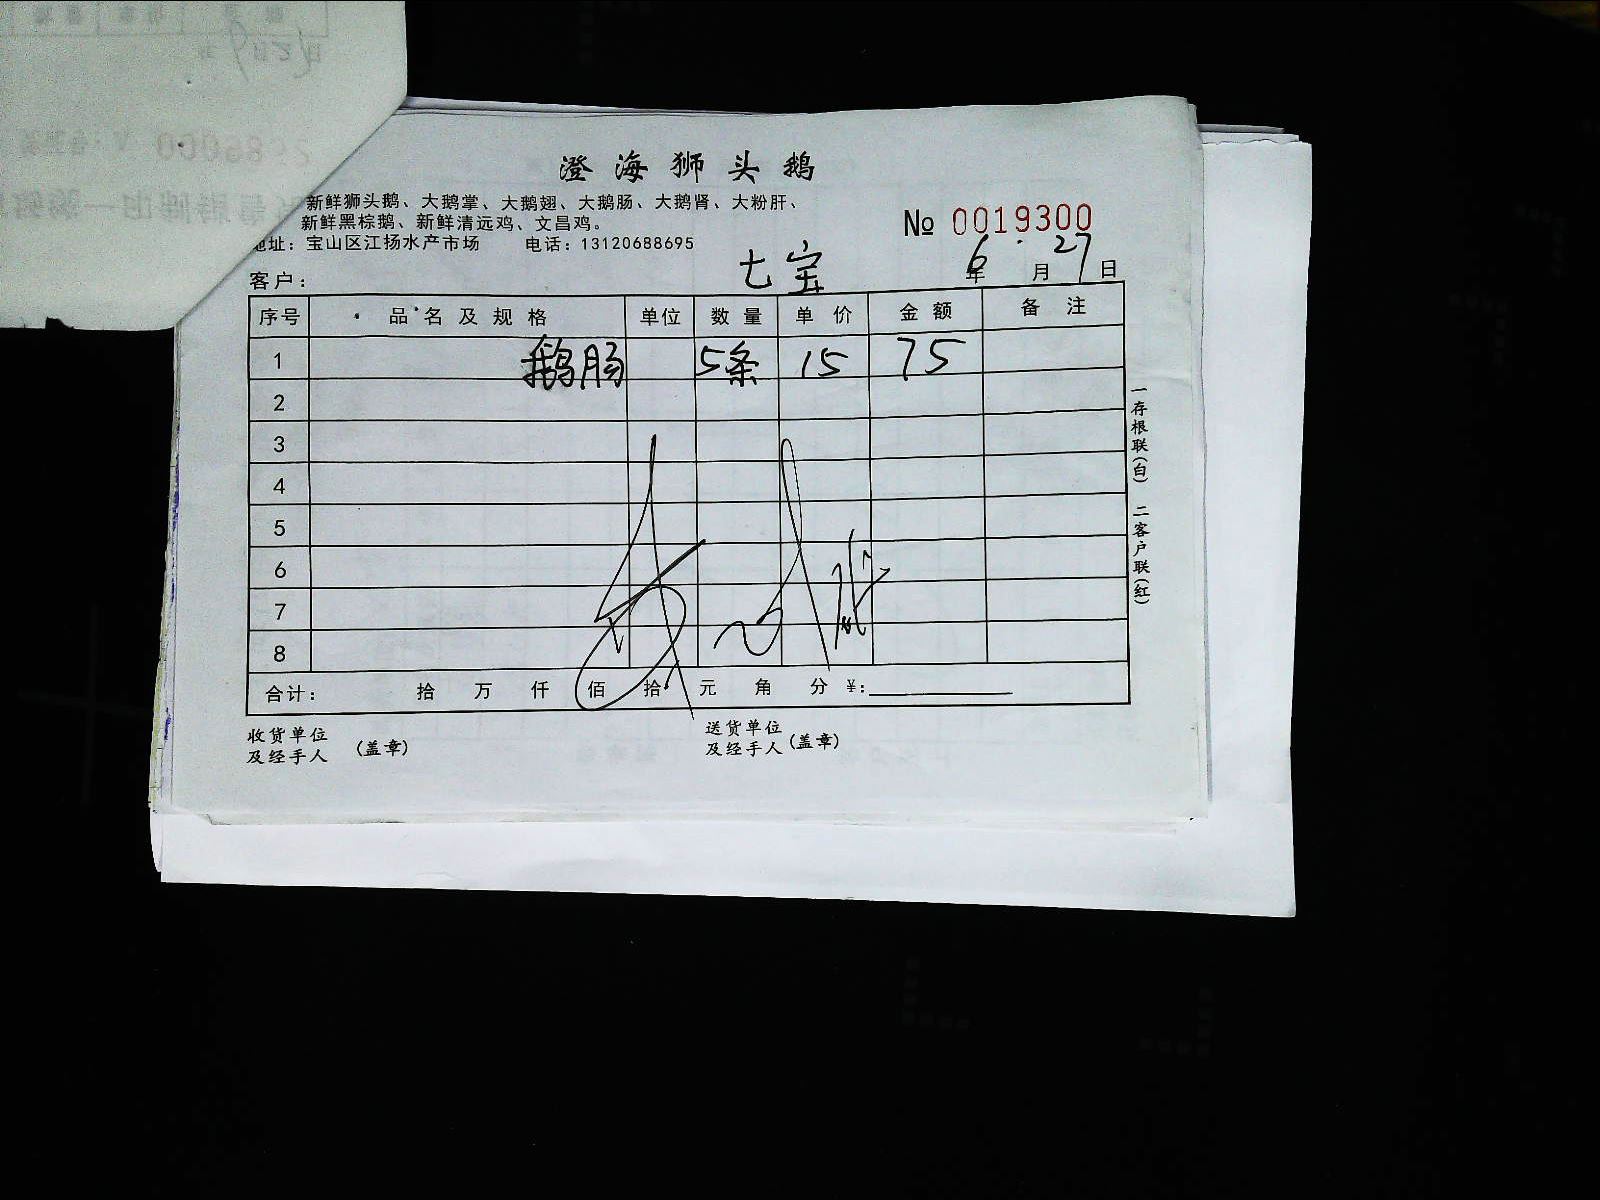 澄海狮头鹅
新鲜狮头鹅、大鹅掌、大鹅翅、大鹅肠、大鹅肾、大粉肝、
新鲜黑棕鹅、新鲜清远鸡、文昌鸡。
地址：宝山区江扬水产市场 电话：13120688695
№ 0019300
客户： 七宝 6年 月27日
序号 品名及规格 单位 数量 单价 金额 备注
1 鹅肠 5条 15 75
2
3
4
5
6
7
8
合计： 拾 万 仟 佰 拾 元 角 分 ¥：
收货单位
及经手人 （盖章）
送货单位
及经手人（盖章）
一存根联（白） 二客户联（红）